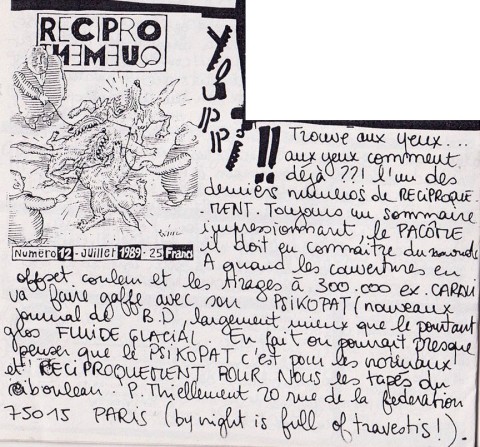 RECIPRO
QUEMENT
Numéro 12 - Juillet 1989 - 25 Francs
Youppi
!! Trouvé aux yeux...
aux yeux comment
déjà ??! l'un des
derniers numéros de RECIPROQUE-
-MENT. Toujours un sommaire
impressionnant, le PACÔME
il doit en connaître du monde
A quand les couvertures en
offset couleur et les tirages à 300.000 ex. CARALI
va faire gaffe avec son PSIKOPAT (nouveaux
journal de B.D, largement mieux que le pourtant
gros FLUIDE GLACIAL. En fait on pourrait presque
penser que le PSIKOPAT c'est pour les normaux
et RECIPROQUEMENT POUR NOUS les tapés du
cibouleau. P. Thiellement 20 rue de la federation
75015 PARIS (by night is full of travestis!).